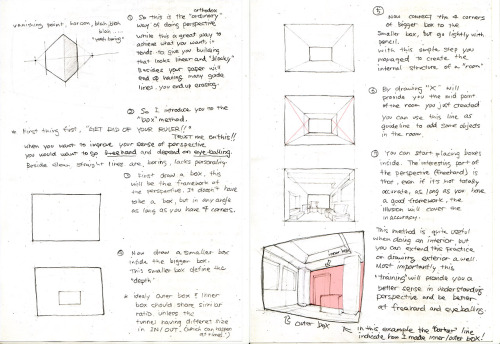 vanishing point, horizon, blah, blah
blah ....
"yeah boring"
orthodox
① So this is the "ordinary"
way of doing perspective
While this a great way to
achieve what you want, it
tends to give you building
that looks linear and "blocky"
Besides your paper will
end up having many guide
lines. you end up erasing.
② So I introduce you to the
"box" method.
* First thing first, "GET RID OF YOUR RULER!!"
TRUST me on this!!
when you want to improve your sense of perspective
you would want to go freehand and depend on eye balling.
Beside clean straight lines are, boring, lacks personality
③ First draw a box, this
will be the framework of
the perspective. It doesn't have
to be a box, but in any angle
as long as you have 4 corners.
④ Now draw a smaller box
inside the bigger box.
This smaller box define the
"depth"
* idealy outer box & inner
box should share similar
ratio. unless the
tunnel having differet size
in IN/OUT. (which can happen
at times!)
⑤ Now connect the 4 corners
of bigger box to the
smaller box, but go lightly with
pencil.
with this simple step you
managed to create the
internal structure of a "room"
⑥ By drawing "X" will
provide you the mid point
of the room you just created
You can use this line as
guideline to add some objects
in the room.
⑦ You can start placing boxes
inside. The interesting part of
the perspective (freehand) is
that, even if it's not totally
accurate, as long as you have
a good framework, the
illusion will cover the
inaccuracy.
This method is quite useful
when doing an interior but
you can extend the practice
on drawing exterior a well.
Most importantly this
"training" will provide you a
better sense in understanding
perspective and be better
at freehand and eyeballing.
inner box
outer box
in this example the "darker" line
indicate how I made inner/outer box!